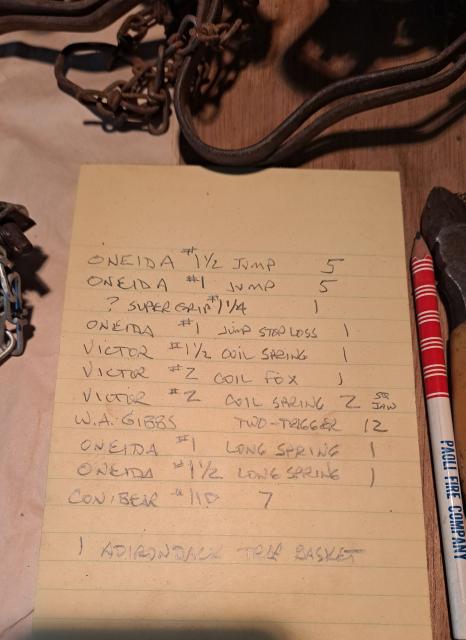 ONEIDA #1 1/2 JUMP 5
ONEIDA #1 JUMP 5
? SUPER GRIP #1 1/4 1
ONEIDA #1 JUMP STOP LOSS 1
VICTOR #1 1/2 COIL SPRING 1
VICTOR #2 COIL FOX 1
VICTOR #2 COIL SPRING 2 SQ JAW
W.A. GIBBS TWO-TRIGGER 12
ONEIDA #1 LONG SPRING 1
ONEIDA #1 1/2 LONG SPRING 1
CONIBEAR #110 7
1 ADIRONDACK TRAP BASKET
PAOLI FIRE COMPANY